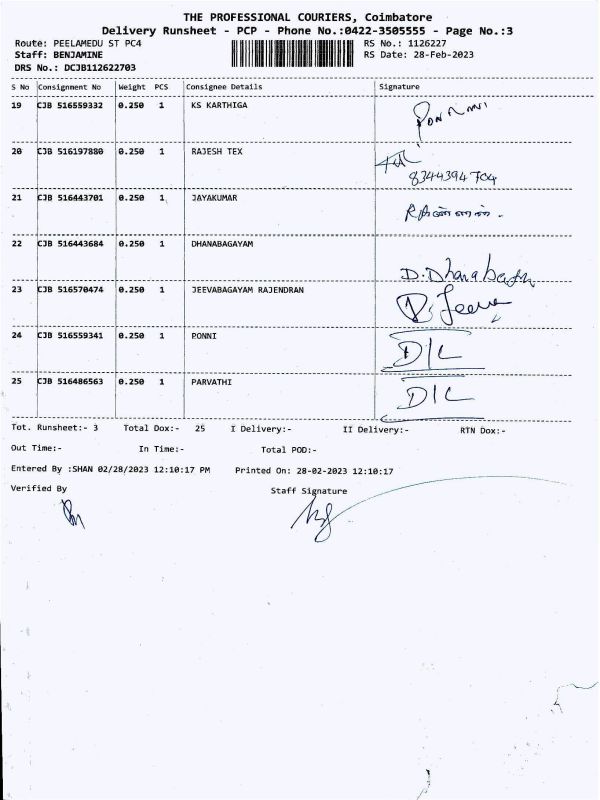 THE PROFESSIONAL COURIERS, Coimbatore
Delivery Runsheet - PCP - Phone No.:0422-3505555 - Page No.:3
Route: PEELAMEDU ST PC4 RS No.: 1126227
Staff: BENJAMINE RS Date: 28-Feb-2023
DRS No.: DCJB112622703
S No Consignment No Weight PCS Consignee Details Signature
19 CJB 516559332 0.250 1 KS KARTHIGA
20 CJB 516197880 0.250 1 RAJESH TEX
8344394704
21 CJB 516443701 0.250 1 JAYAKUMAR
22 CJB 516443684 0.250 1 DHANABAGAYAM
D. Dhanabagm
23 CJB 516570474 0.250 1 JEEVABAGAYAM RAJENDRAN
Jeeva
24 CJB 516559341 0.250 1 PONNI D/L
25 CJB 516486563 0.250 1 PARVATHI D/L
Tot. Runsheet:- 3 Total Dox:- 25 I Delivery:- II Delivery:- RTN Dox:-
Out Time:- In Time:- Total POD:-
Entered By :SHAN 02/28/2023 12:10:17 PM Printed On: 28-02-2023 12:10:17
Verified By Staff Signature